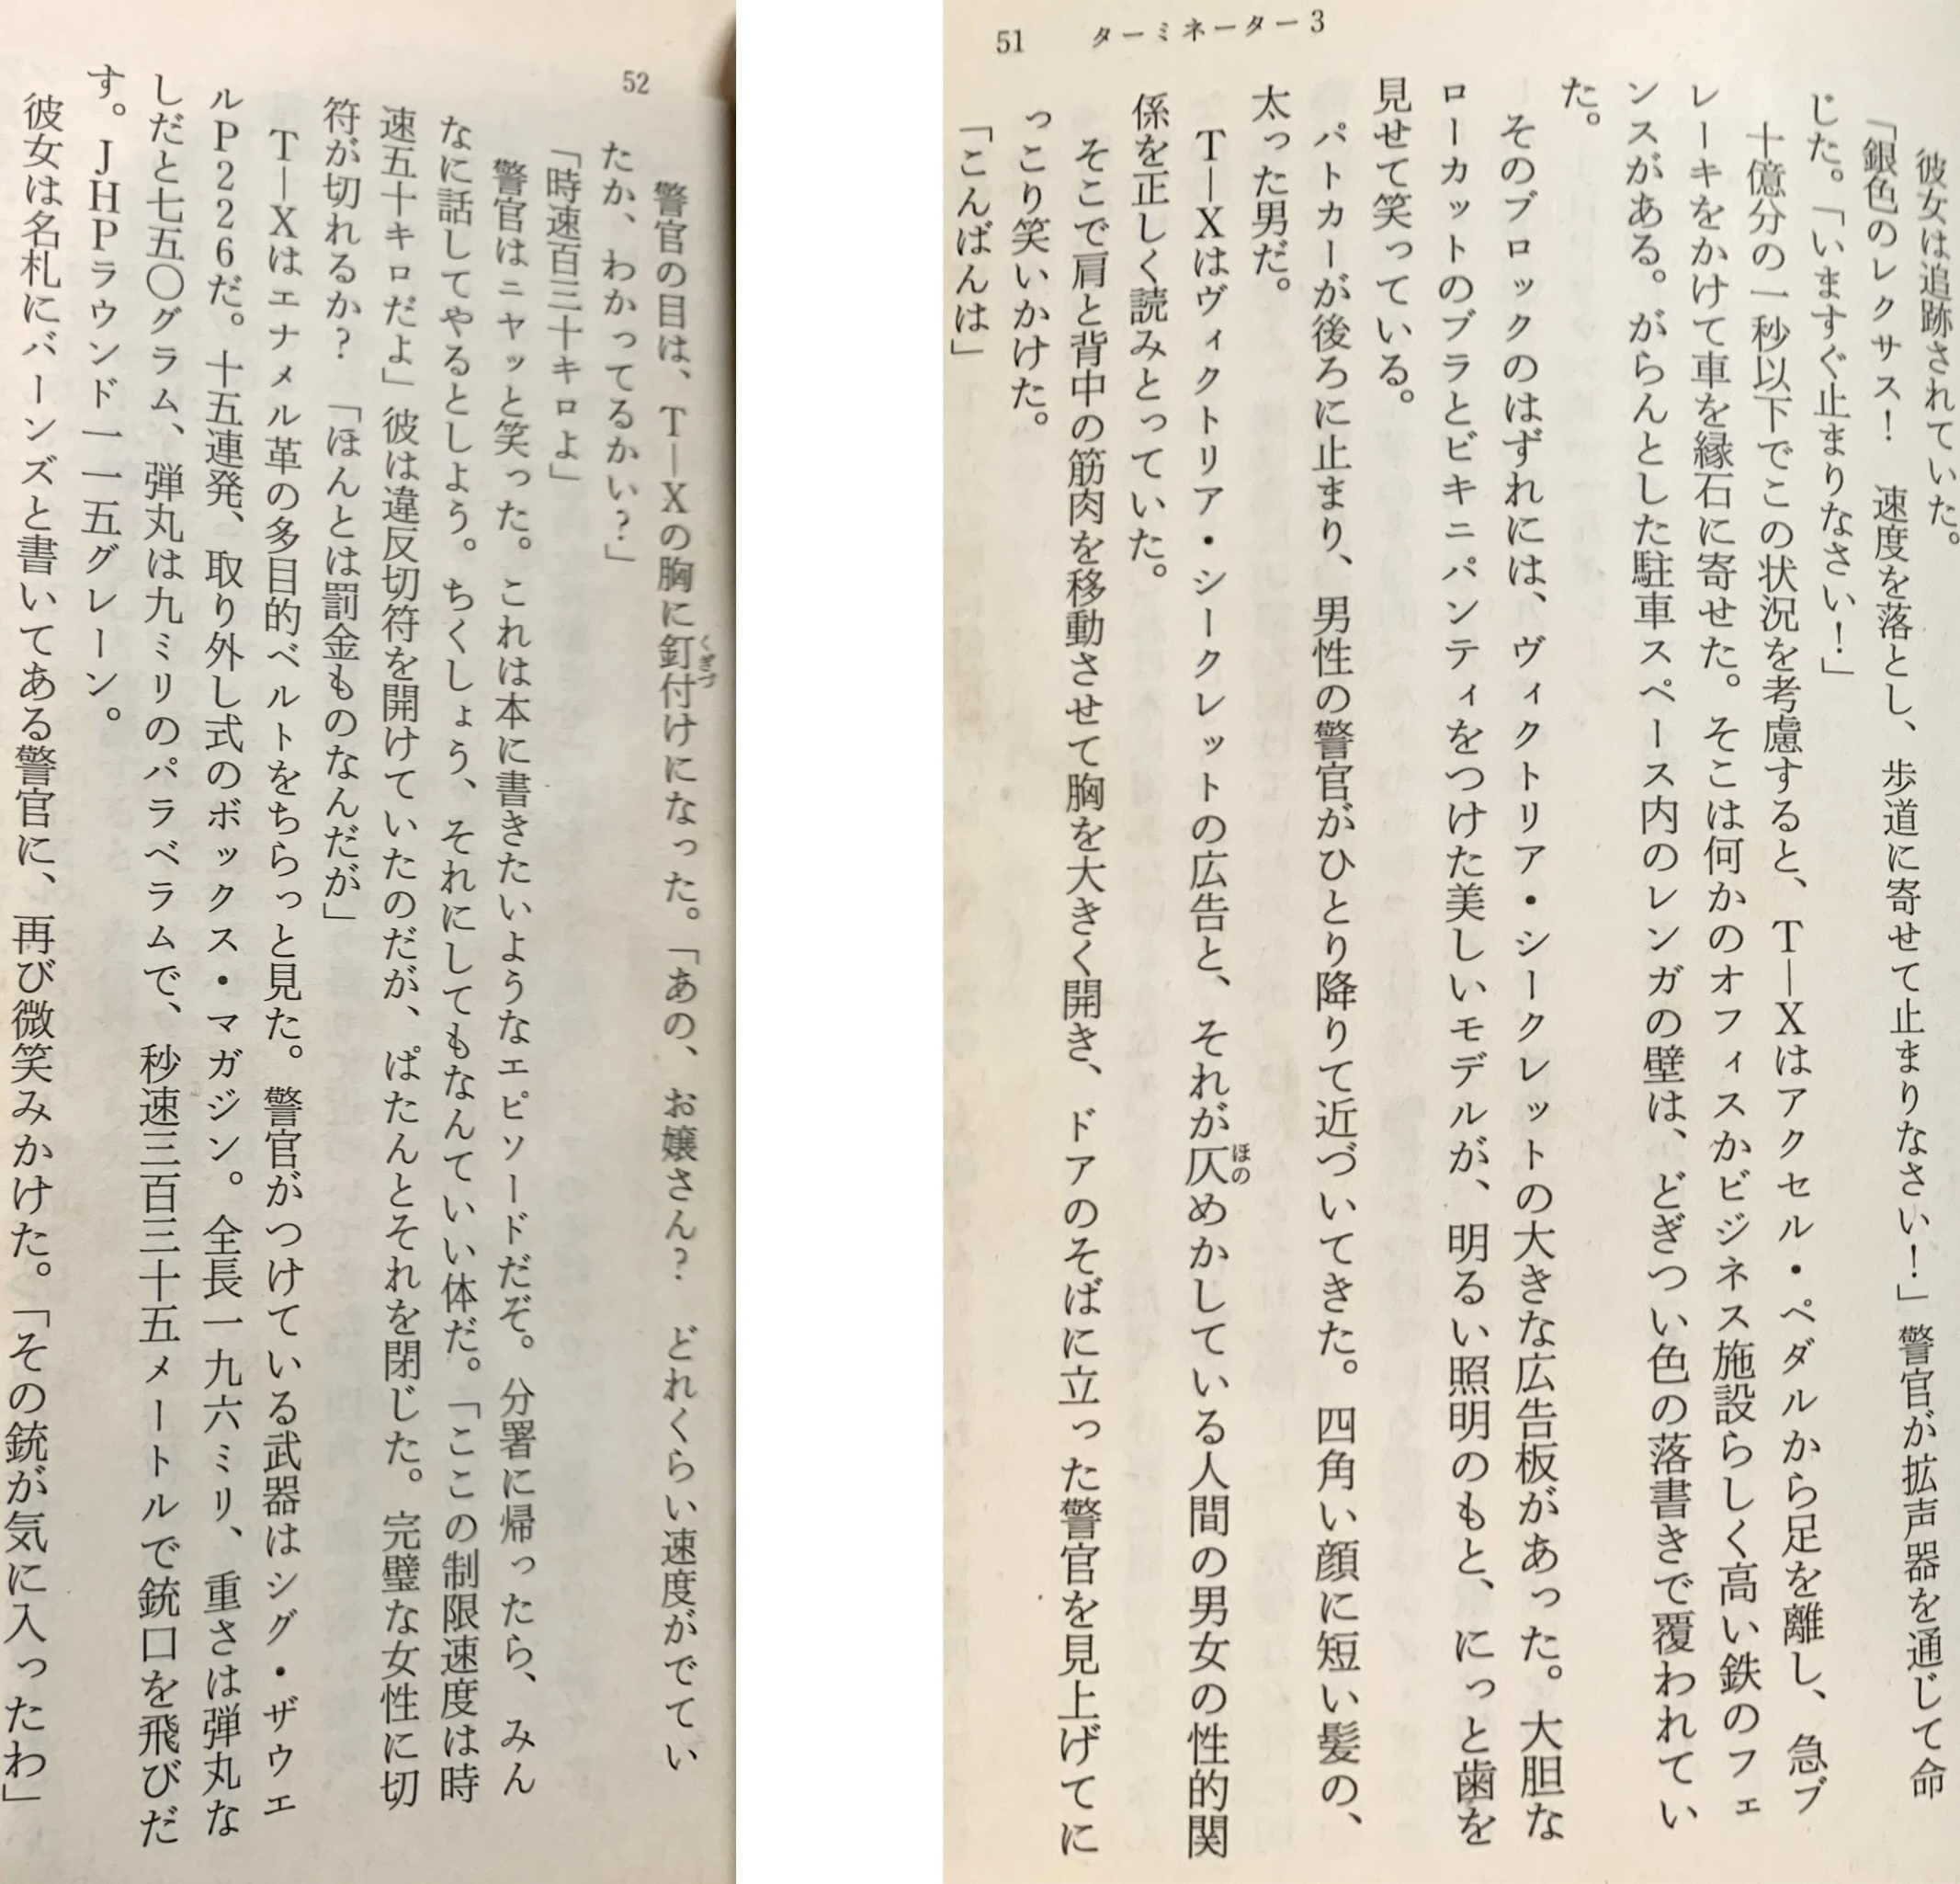 51 ターミネーター3
彼女は追跡されていた。
「銀色のレクサス！　速度を落とし、歩道に寄せて止まりなさい！」警官が拡声器を通じて命
じた。「いますぐ止まりなさい！」
十億分の一秒以下でこの状況を考慮すると、T―Xはアクセル・ペダルから足を離し、急ブ
レーキをかけて車を縁石に寄せた。そこは何かのオフィスかビジネス施設らしく高い鉄のフェ
ンスがある。がらんとした駐車スペース内のレンガの壁は、どぎつい色の落書きで覆われてい
た。
そのブロックのはずれには、ヴィクトリア・シークレットの大きな広告板があった。大胆な
ローカットのブラとビキニパンティをつけた美しいモデルが、明るい照明のもと、にっと歯を
見せて笑っている。
パトカーが後ろに止まり、男性の警官がひとり降りて近づいてきた。四角い顔に短い髪の、
太った男だ。
T―Xはヴィクトリア・シークレットの広告と、それが仄めかしている人間の男女の性的関
ほの
係を正しく読みとっていた。
そこで肩と背中の筋肉を移動させて胸を大きく開き、ドアのそばに立った警官を見上げてに
っこり笑いかけた。
「こんばんは」
52
警官の目は、T―Xの胸に釘付けになった。「あの、お嬢さん？　どれくらい速度がでてい
くぎづ
たか、わかってるかい？」
「時速百三十キロよ」
警官はニヤッと笑った。これは本に書きたいようなエピソードだぞ。分署に帰ったら、みん
なに話してやるとしよう。ちくしょう、それにしてもなんていい体だ。「ここの制限速度は時
速五十キロだよ」彼は違反切符を開けていたのだが、ぱたんとそれを閉じた。完璧な女性に切
符が切れるか？　「ほんとは罰金ものなんだが」
T―Xはエナメル革の多目的ベルトをちらっと見た。警官がつけている武器はシグ・ザウエ
ルP226だ。十五連発、取り外し式のボックス・マガジン。全長一九六ミリ、重さは弾丸な
しだと七五〇グラム、弾丸は九ミリのパラベラムで、秒速三百三十五メートルで銃口を飛びだ
す。JHPラウンド一一五グレーン。
彼女は名札にバーンズと書いてある警官に、再び微笑みかけた。「その銃が気に入ったわ」